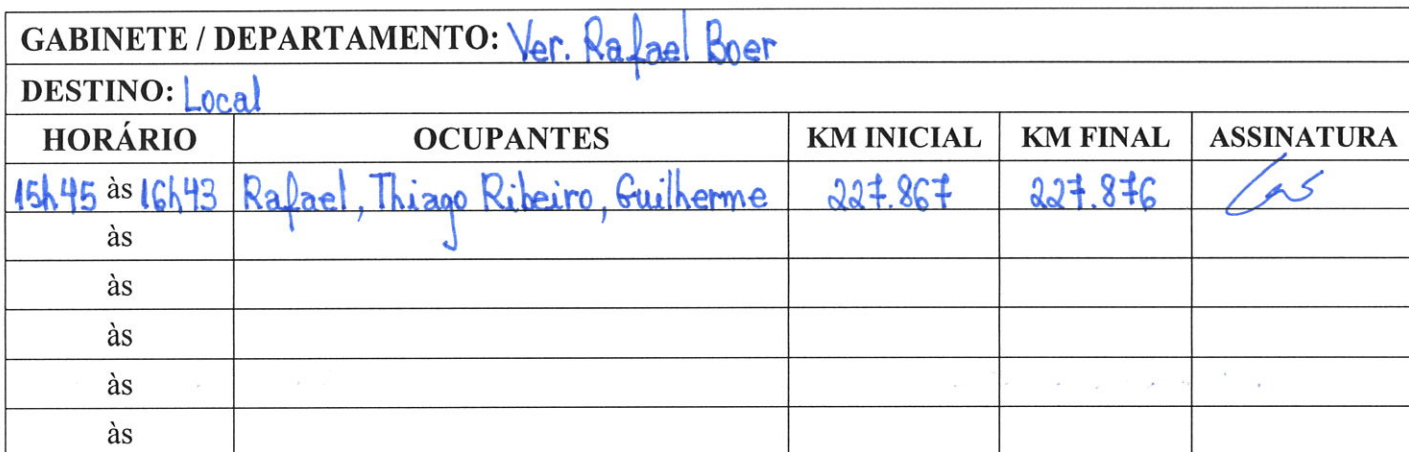 GABINETE / DEPARTAMENTO: Ver. Rafael Boer
DESTINO: Local
HORÁRIO OCUPANTES KM INICIAL KM FINAL ASSINATURA
15h45 às 16h43 Rafael, Thiago Ribeiro, Guilherme 227.867 227.876
às
às
às
às
às